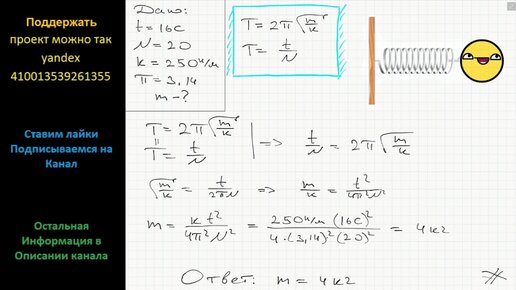 Поддержать
проект можно так
yandex
410013539261355
Ставим лайки
Подписываемся на
Канал
Остальная
Информация в
Описании канала
Дано:
t = 16с
N = 20
k = 250 н/м
π = 3,14
m - ?
T = 2π√(m/k)
T = t/N
T = 2π√(m/k)
T = t/N
=> t/N = 2π√(m/k)
√(m/k) = t/(2πN) => m/k = t²/(4π²N²)
m = kt²/(4π²N²) = 250 н/м (16с)²/(4·(3,14)²(20)²) = 4кг
Ответ: m = 4кг